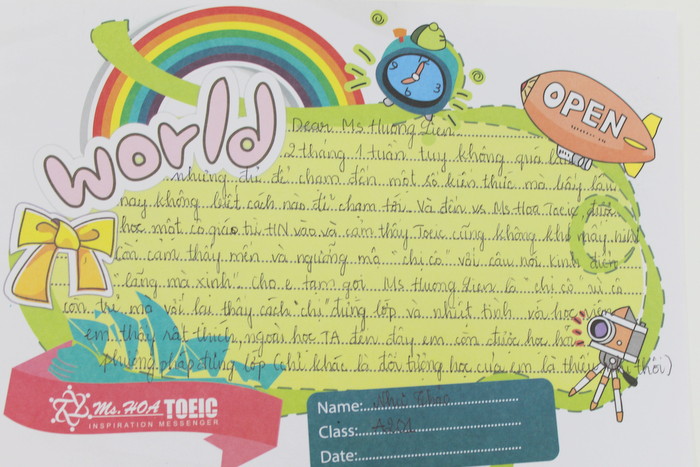 world
OPEN
Dear Ms Hương Liên
2 tháng 1 tuần tuy không quá
nhưng đủ để chạm đến một số kiến thức mà bấy lâu
nay không biết cách nào để chạm tới. Và đến vs Ms Hoa Toeic được
học một cô giáo từ HN vào và cảm thấy Toeic cũng không khó mấy
cảm thấy mến và ngưỡng mộ "chị cô" với câu nói kinh điển
"Bằng mà xinh". Cho e tạm gọi Ms Hương Liên là "chị cô" vì cô
còn trẻ mà với lại thấy cách chị đứng lớp và nhiệt tình với học viên
em thấy rất thích, ngoài học TA đến đây em còn được học
phương pháp đứng lớp (chỉ khác là đối tượng học của em là thiếu thôi)
Ms. HOA TOEIC
INSPIRATION MESSENGER
Name:
Class:
Date: